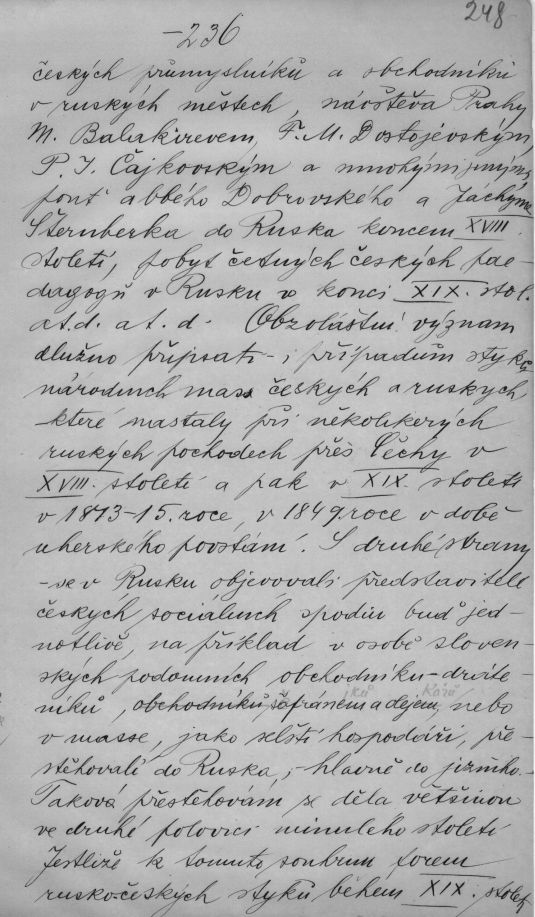 248
-236
českých průmyslníků a obchodníků
v ruských městech, návštěva Prahy
M. Balakirevem, F. M. Dostojévským,
P. I. Čajkovským a mnohými jinými,
pouť abbého Dobrovského a Jáchyma
Šternberka do Ruska koncem XVIII.
století, pobyt četných českých pae-
dagogů v Rusku v konci XIX. stol.
a.t.d. a t. d. Obzoláštní význam
dlužno připsati i případům styků
národních mass českých a ruských
které nastaly při několikerých
ruských pochodech přes Čechy v
XVIII. století a pak v XIX. století
v 1813-15. roce, v 1849. roce v době
uherského povstání. S druhé strany
-se v Rusku objevovali představitelé
českých sociálních spodin buď jed-
notlivě, na příklad v osobě sloven-
ských podomních obchodníků-dráte-
níků, obchodníků, šafránem a olejem, nebo
jků kářů
v masse, jako selští hospodáři, pře-
stěhovalí do Ruska, - hlavně do jižního.
Taková přestěhování se děla většinou
ve druhé polovici minulého století
Jestliže k tomuto souhrnu forem
rusko-českých styků během XIX. století